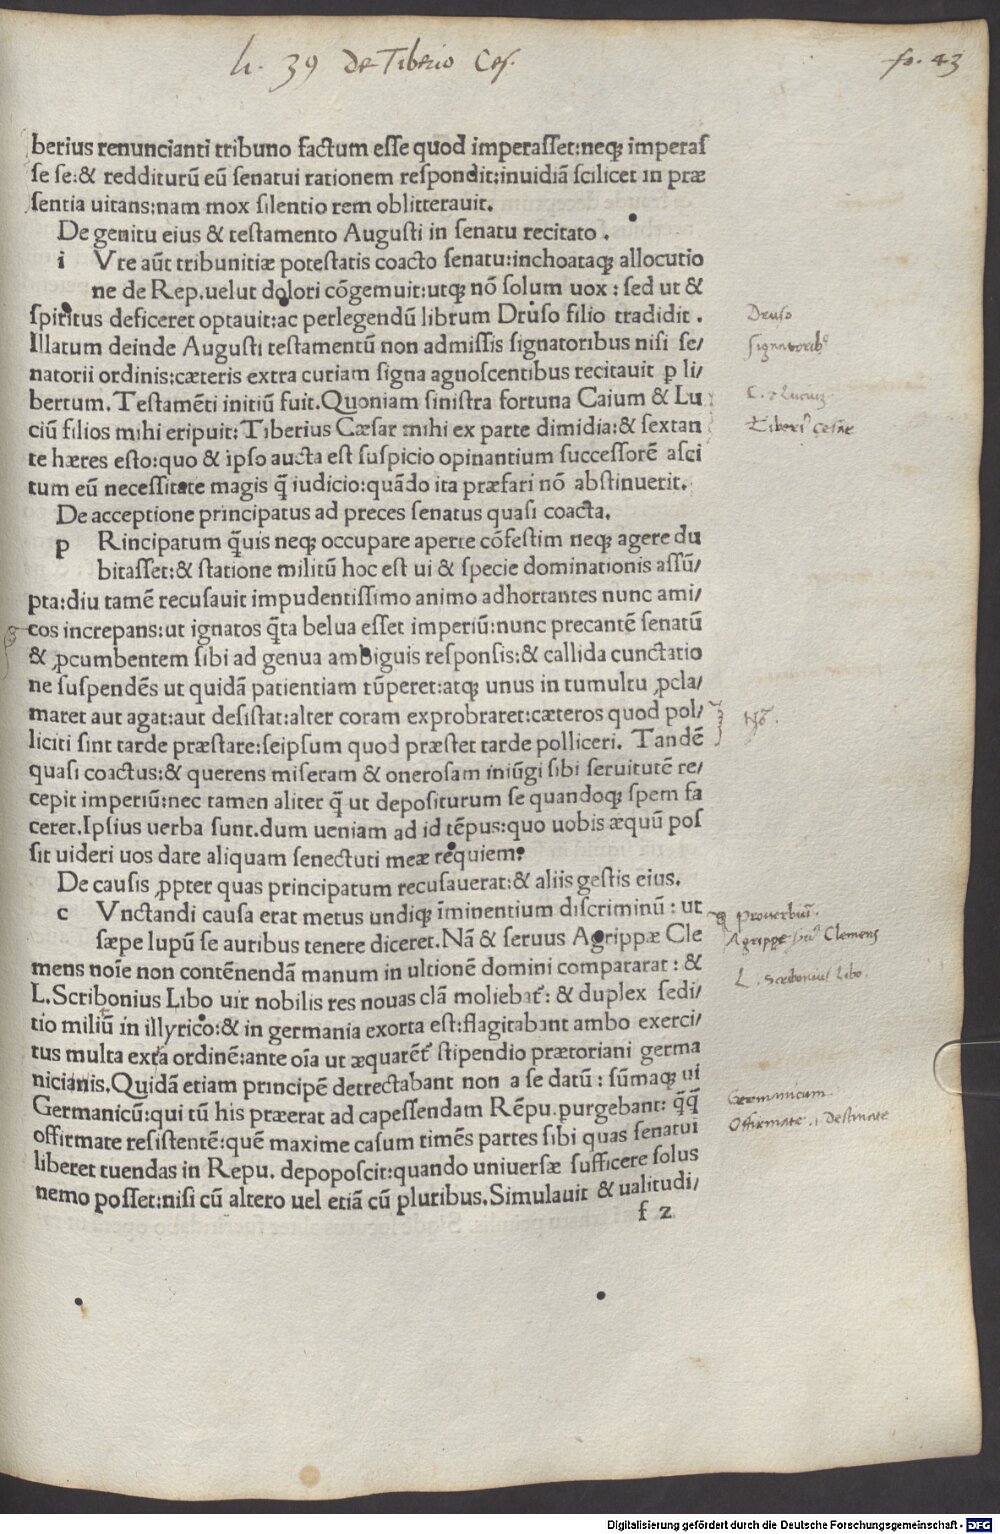 li. 39 De Tiberio Ces.
fo. 43
berius renuncianti tribuno factum esse quod imperasset:neqꝫ imperas
se se:& redditurū eū senatui rationem respondit:inuidiā scilicet in præ
sentia uitans:nam mox silentio rem oblitterauit.
De genitu eius & testamento Augusti in senatu recitato .
i Vre aūt tribunitiæ potestatis coacto senatu:inchoataqꝫ allocutio
ne de Rep.uelut dolori cōgemuit:utqꝫ nō solum uox : sed ut &
spiritus deficeret optauit:ac perlegendū librum Druso filio tradidit .
Illatum deinde Augusti testamentū non admissis signatoribus nisi se/
natorii ordinis:cæteris extra curiam signa agnoscentibus recitauit ꝑ li/
bertum.Testamēti initiū fuit.Quoniam sinistra fortuna Caium & Lu
ciū filios mihi eripuit:Tiberius Cæsar mihi ex parte dimidia:& sextan
te hæres esto:quo & ipso aucta est suspicio opinantium successorē asci
tum eū necessitate magis q̄ iudicio:quādo ita præfari nō abstinuerit.
De acceptione principatus ad preces senatus quasi coacta.
p Rincipatum q̄uis neqꝫ occupare aperte cōfestim neqꝫ agere du
bitasset:& statione militū hoc est ui & specie dominationis assū/
pta:diu tamē recusauit impudentissimo animo adhortantes nunc ami/
cos increpans:ut ignatos q̄ta belua esset imperiū:nunc precantē senatū
& ꝓcumbentem sibi ad genua ambiguis responsis:& callida cunctatio
ne suspendēs ut quidā patientiam rūperet:atqꝫ unus in tumultu ꝓcla/
maret aut agat:aut desistat:alter coram exprobraret:cæteros quod pol/
liciti sint tarde præstare:seipsum quod præstet tarde polliceri. Tandē
quasi coactus:& querens miseram & onerosam iniūgi sibi seruitutē re/
cepit imperiū:nec tamen aliter q̄ ut depositurum se quandoqꝫ spem fa
ceret.Ipsius uerba sunt.dum ueniam ad id tēpus:quo uobis æquū pos
sit uideri uos dare aliquam senectuti meæ requiem.
De causis ꝓpter quas principatum recusauerat:& aliis gestis eius.
c Vnctandi causa erat metus undiqꝫ īminentium discriminū : ut
sæpe lupū se auribus tenere diceret.Nā & seruus Agrippæ Cle
mens noīe non contēnendā manum in ultionē domini compararat : &
L.Scribonius Libo uir nobilis res nouas clā moliebat᷑ : & duplex sedi/
tio miliū in illyrico:& in germania exorta est:flagitabant ambo exerci/
tus multa extra ordinē:ante oīa ut æquarēt᷑ stipendio prætoriani germa
nicianis.Quidā etiam principē detrectabant non a se datū : sūmaqꝫ ui
Germanicū:qui tū his præerat ad capessendam Rēpu.purgebant: q̄q̄
offirmate resistentē:quē maxime casum timēs partes sibi quas senatui
liberet tuendas in Repu. depoposcit:quando uniuersæ sufficere solus
nemo posset:nisi cū altero uel etiā cū pluribus.Simulauit & ualitudi/
f 2
Druso
signatorib9
C. & Lucius
Tiberi9 Cesar
No.
Prouerbiū.
Agrippe Clemens
L. Scribonius Libo.
Germanicum.
Offirmate .i. Destinate
Digitalisierung gefördert durch die Deutsche Forschungsgemeinschaft - DFG